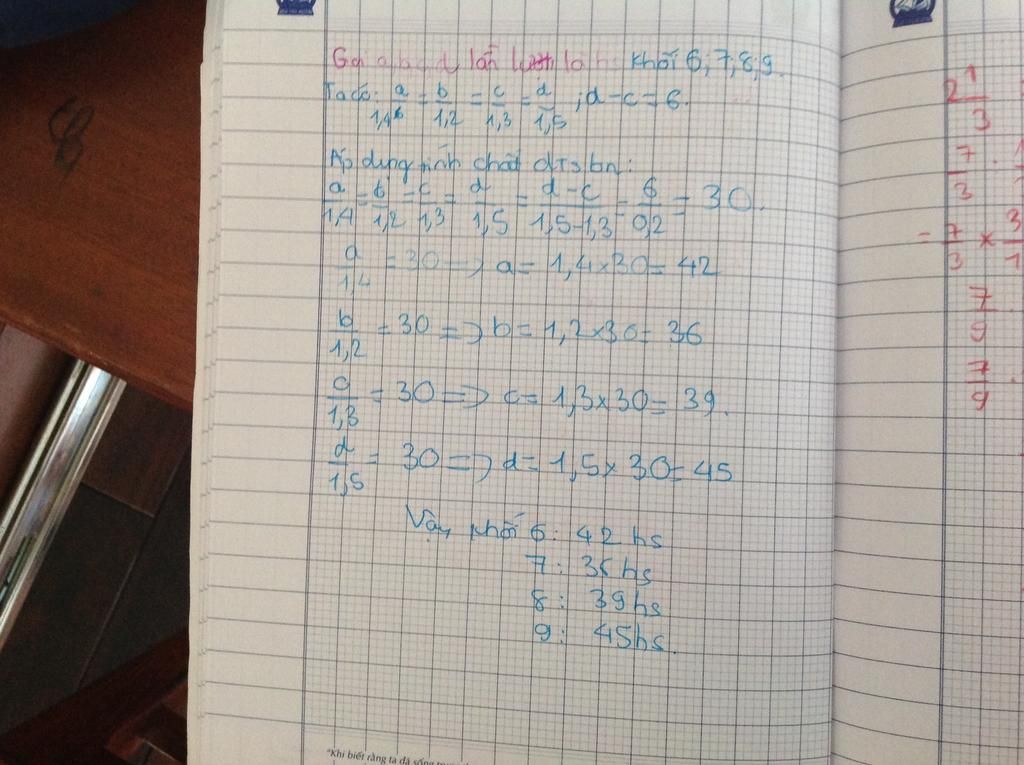 Gọi a, b, c, d lần lượt là hs khối 6; 7; 8; 9.
Ta có: a/1,4 = b/1,2 = c/1,3 = d/1,5 ; d - c = 6.
Áp dụng tính chất dTsbn:
a/1,4 = b/1,2 = c/1,3 = d/1,5 = d - c/1,5 - 1,3 = 6/0,2 = 30.
a/1,4 = 30 => a = 1,4 x 30 = 42
b/1,2 = 30 => b = 1,2 x 30 = 36
c/1,3 = 30 => c = 1,3 x 30 = 39.
d/1,5 = 30 => d = 1,5 x 30 = 45
Vậy khối 6: 42 hs
7: 36 hs
8: 39 hs
9: 45 hs.
"Khi biết rằng ta đã sống
2 1/3
7/3 .
= 7/3 x 3/1
7/9
7/9